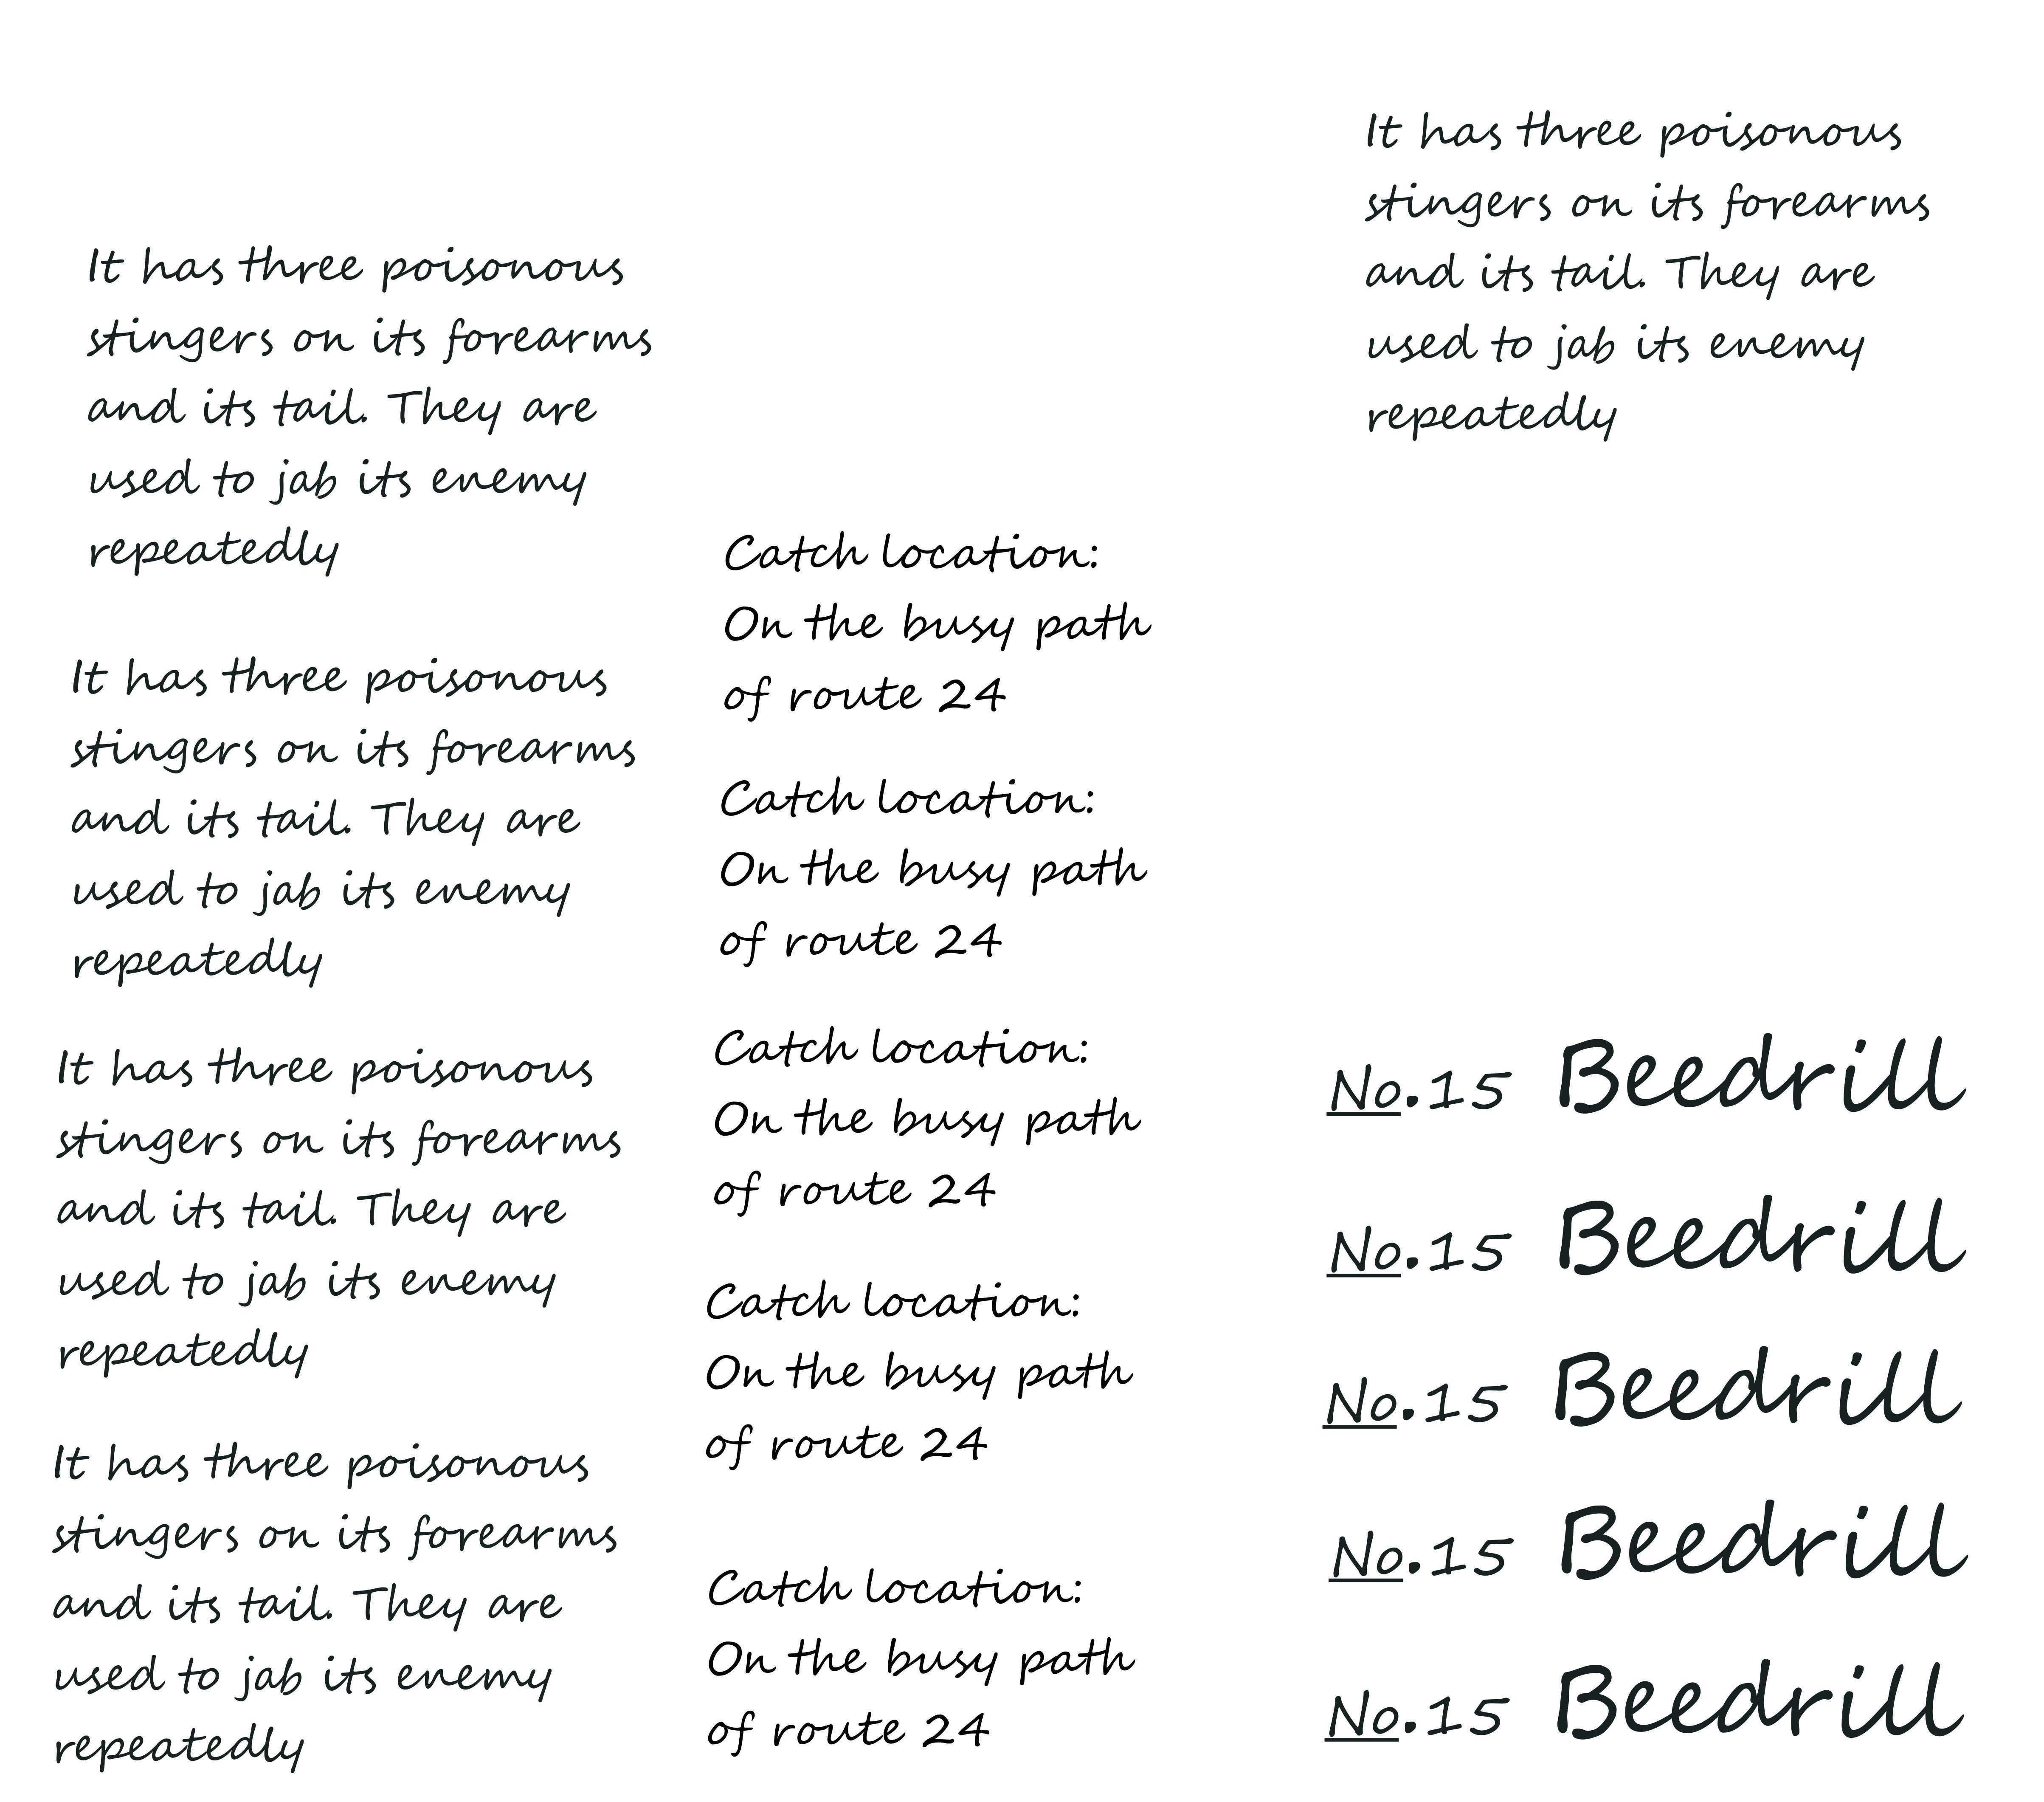 It has three poisonous
stingers on its forearms
and its tail. They are
used to jab its enemy
repeatedly
It has three poisonous
stingers on its forearms
and its tail. They are
used to jab its enemy
repeatedly
It has three poisonous
stingers on its forearms
and its tail. They are
used to jab its enemy
repeatedly
It has three poisonous
stingers on its forearms
and its tail. They are
used to jab its enemy
repeatedly
Catch location:
On the busy path
of route 24
Catch location:
On the busy path
of route 24
Catch location:
On the busy path
of route 24
Catch location:
On the busy path
of route 24
Catch location:
On the busy path
of route 24
It has three poisonous
stingers on its forearms
and its tail. They are
used to jab its enemy
repeatedly
No.15 Beedrill
No.15 Beedrill
No.15 Beedrill
No.15 Beedrill
No.15 Beedrill